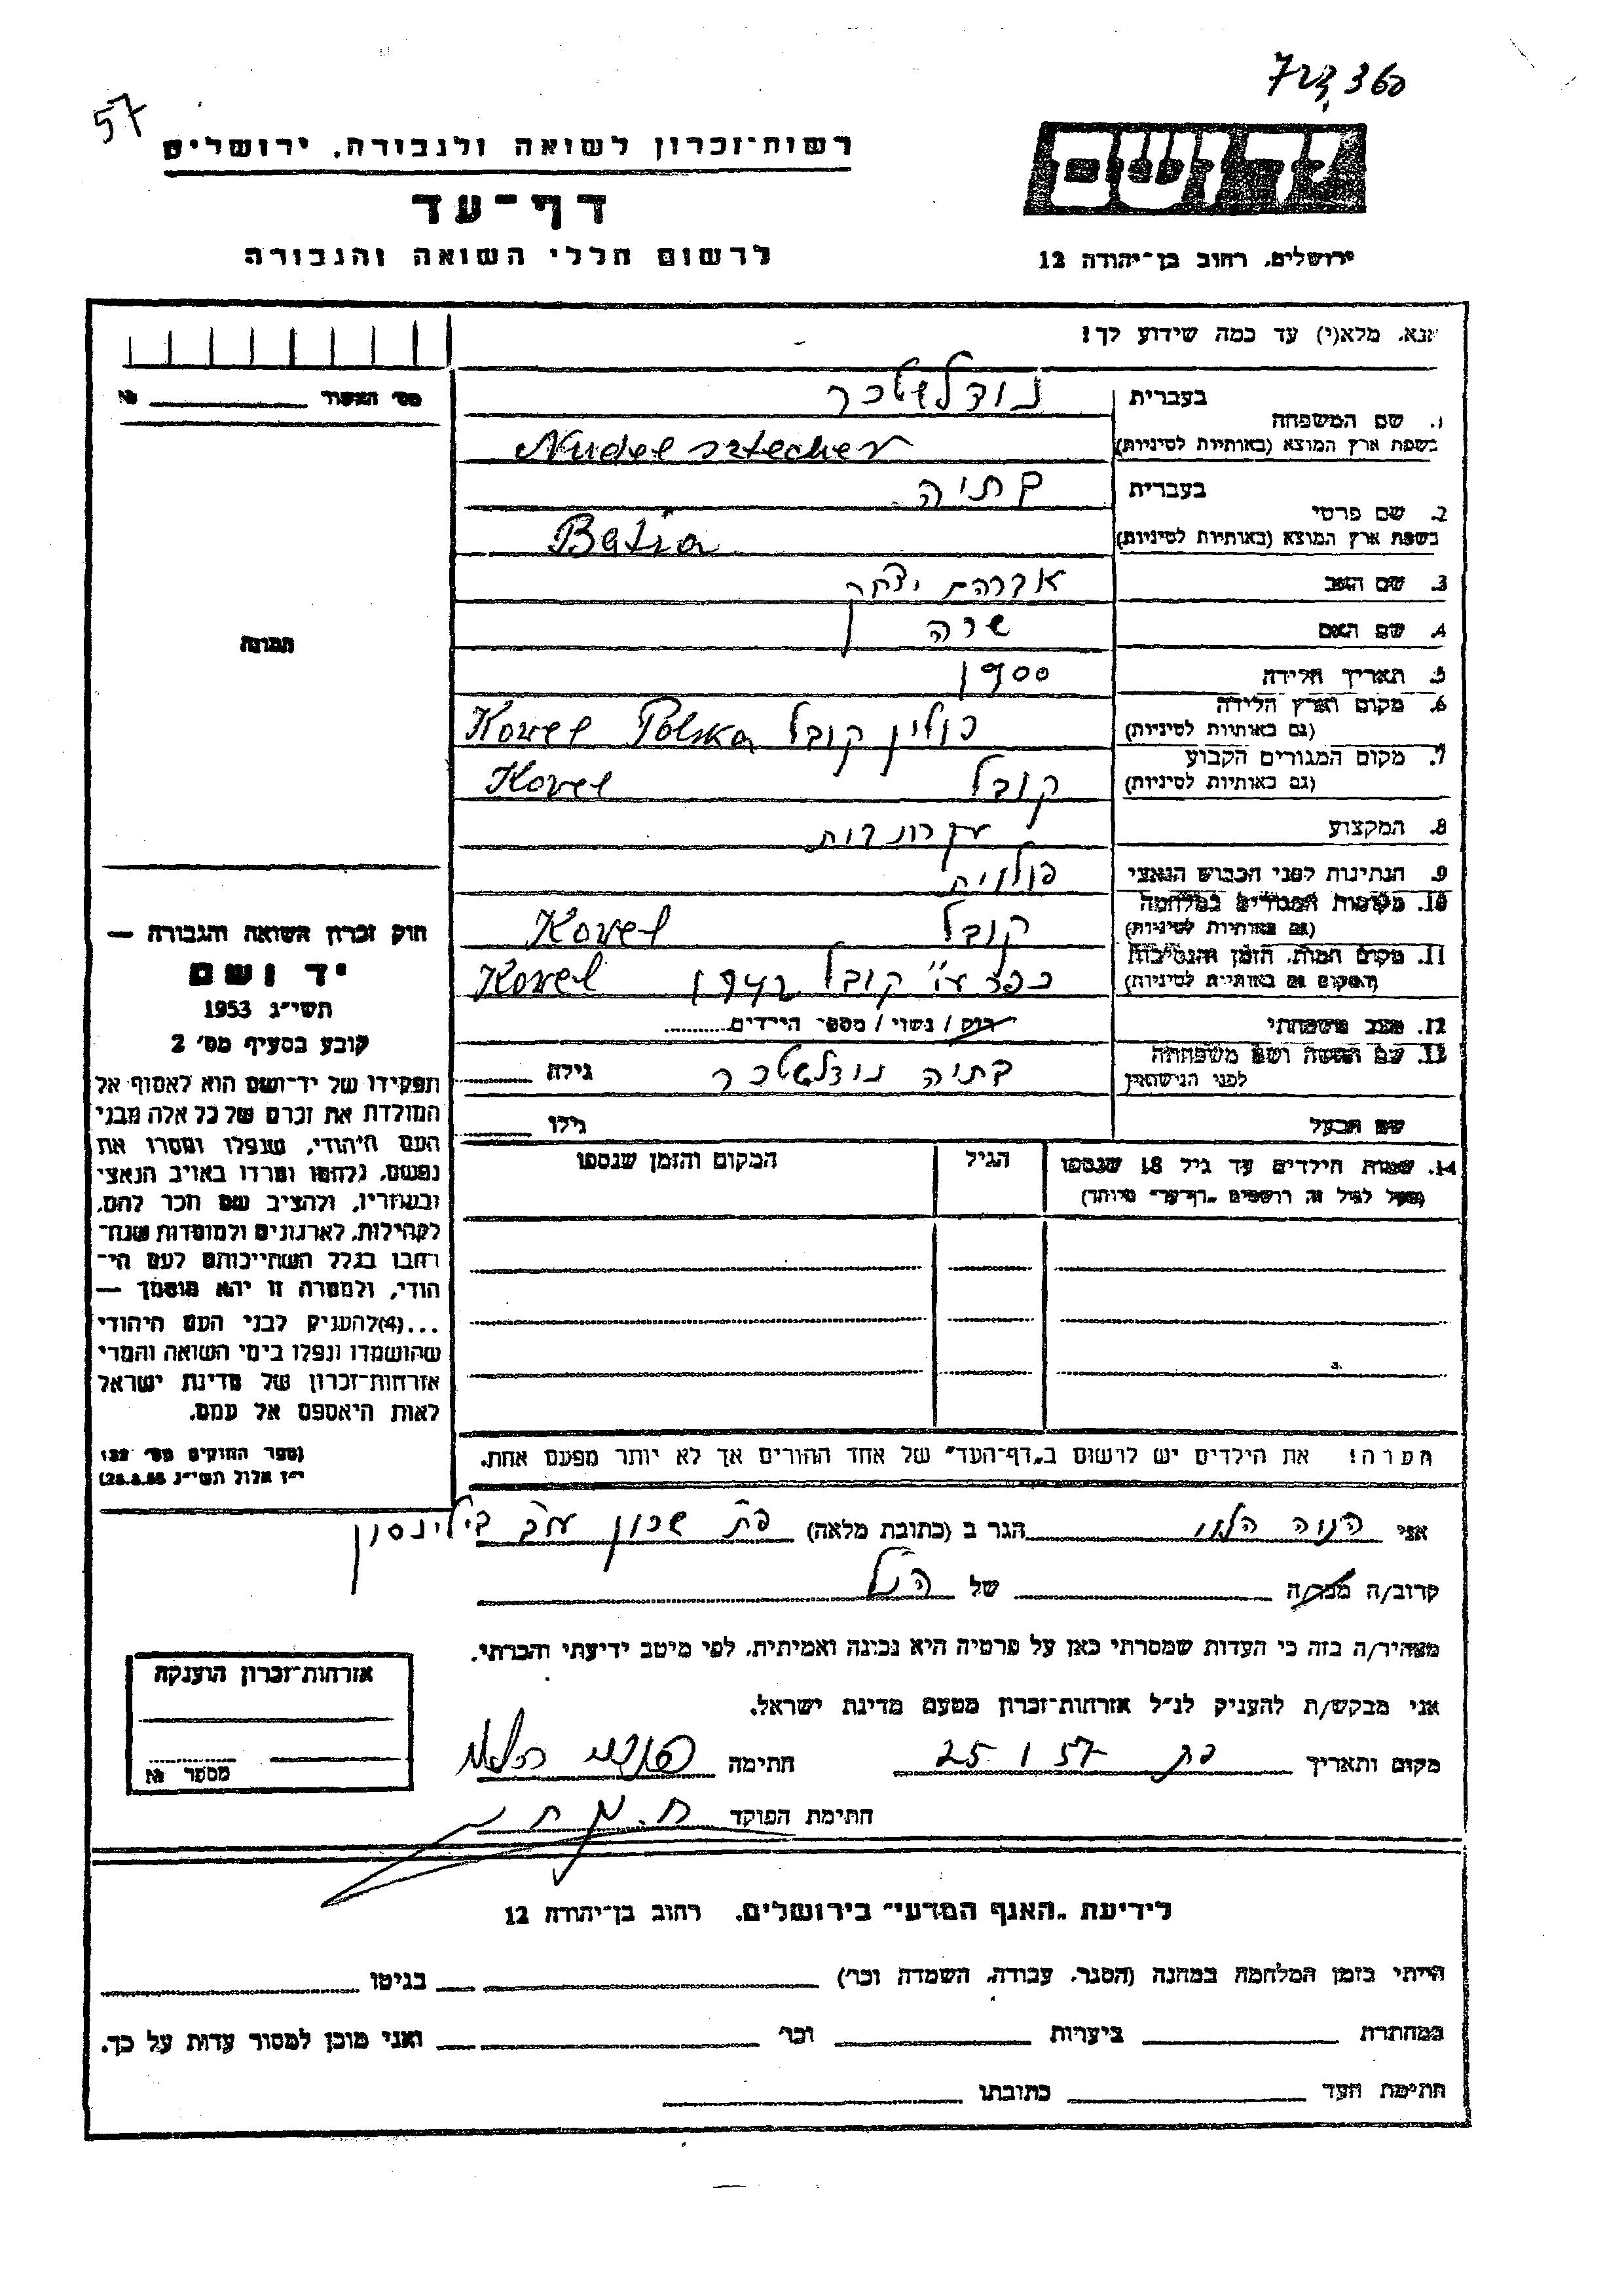 57
רשות־זכרון לשואה ולגבורה, ירושלים
דף־עד
לרשום חללי השואה והגבורה
יד ושם
ירושלים, רחוב בן־יהודה 12
אנא, מלא(י) עד כמה שידוע לך!
מס' האשור № 
1. שם המשפחה בעברית נודלשטכר
בשפת ארץ המוצא (באותיות לטיניות) Nudel sztecher
2. שם פרטי בעברית בתיה
בשפת ארץ המוצא (באותיות לטיניות) Batia
3. שם האב אברהם יצחק
4. שם האם שרה
5. תאריך הלידה 1900
6. מקום וארץ הלידה (גם באותיות לטיניות) פולין קובל Kowel Polska
7. מקום המגורים הקבוע (גם באותיות לטיניות) קובל Kovel
8. המקצוע עקרת בית
9. הנתינות לפני הכבוש הנאצי פולנית
10. מקומות המגורים במלחמה (גם באותיות לטיניות) קובל Kovel
11. מקום המות, הזמן והנסיבות (המקום גם באותיות לטיניות) בכפר ע"י קובל 1942 Kovel
12. מצב משפחתי רווק / נשוי / מספר הילדים
13. שם האשה ושם משפחתה לפני הנישואין בתיה נודלשטכר גילה
שם הבעל גילו
14. שמות הילדים עד גיל 18 שנספו הגיל המקום והזמן שנספו
(מעל לגיל זה רושמים "דף־עד" מיוחד)
הערה! את הילדים יש לרשום ב"דף־העד" של אחד ההורים אך לא יותר מפעם אחת.
תמונה
חוק זכרון השואה והגבורה —
יד ושם
תשי"ג 1953
קובע בסעיף מס' 2
תפקידו של יד־ושם הוא לאסוף אל
המולדת את זכרם של כל אלה מבני
העם היהודי, שנפלו ומסרו את
נפשם, נלחמו ומרדו באויב הנאצי
ובעוזריו, ולהציב שם וזכר להם,
לקהילות, לארגונים ולמוסדות שנח־
רבו בגלל השתייכותם לעם הי־
הודי, ולמטרה זו יהא מוסמך —
...(4)להעניק לבני העם היהודי
שהושמדו ונפלו בימי השואה והמרי
אזרחות־זכרון של מדינת ישראל
לאות היאספם אל עמם.
(ספר החוקים מס' 132
י"ז אלול תשי"ג 28.8.53)
אני הגר ב (כתובת מלאה) פת שכון עכב בילינסון
קרוב/ה מכר/ה של הנ"ל
מצהיר/ה בזה כי העדות שמסרתי כאן על פרטיה היא נכונה ואמיתית, לפי מיטב ידיעתי והכרתי.
אני מבקש/ת להעניק לנ"ל אזרחות־זכרון מטעם מדינת ישראל.
מקום ותאריך פת 25 1 57 חתימה
חתימת הפוקד
אזרחות־זכרון הוענקה
מספר №
לידיעת "האגף המדעי" בירושלים, רחוב בן־יהודה 12
הייתי בזמן המלחמה במחנה (הסגר, עבודה, השמדה וכו') בגיטו
במחתרת ביערות וכו' ואני מוכן למסור עדות על כך.
חתימת העד כתובתו